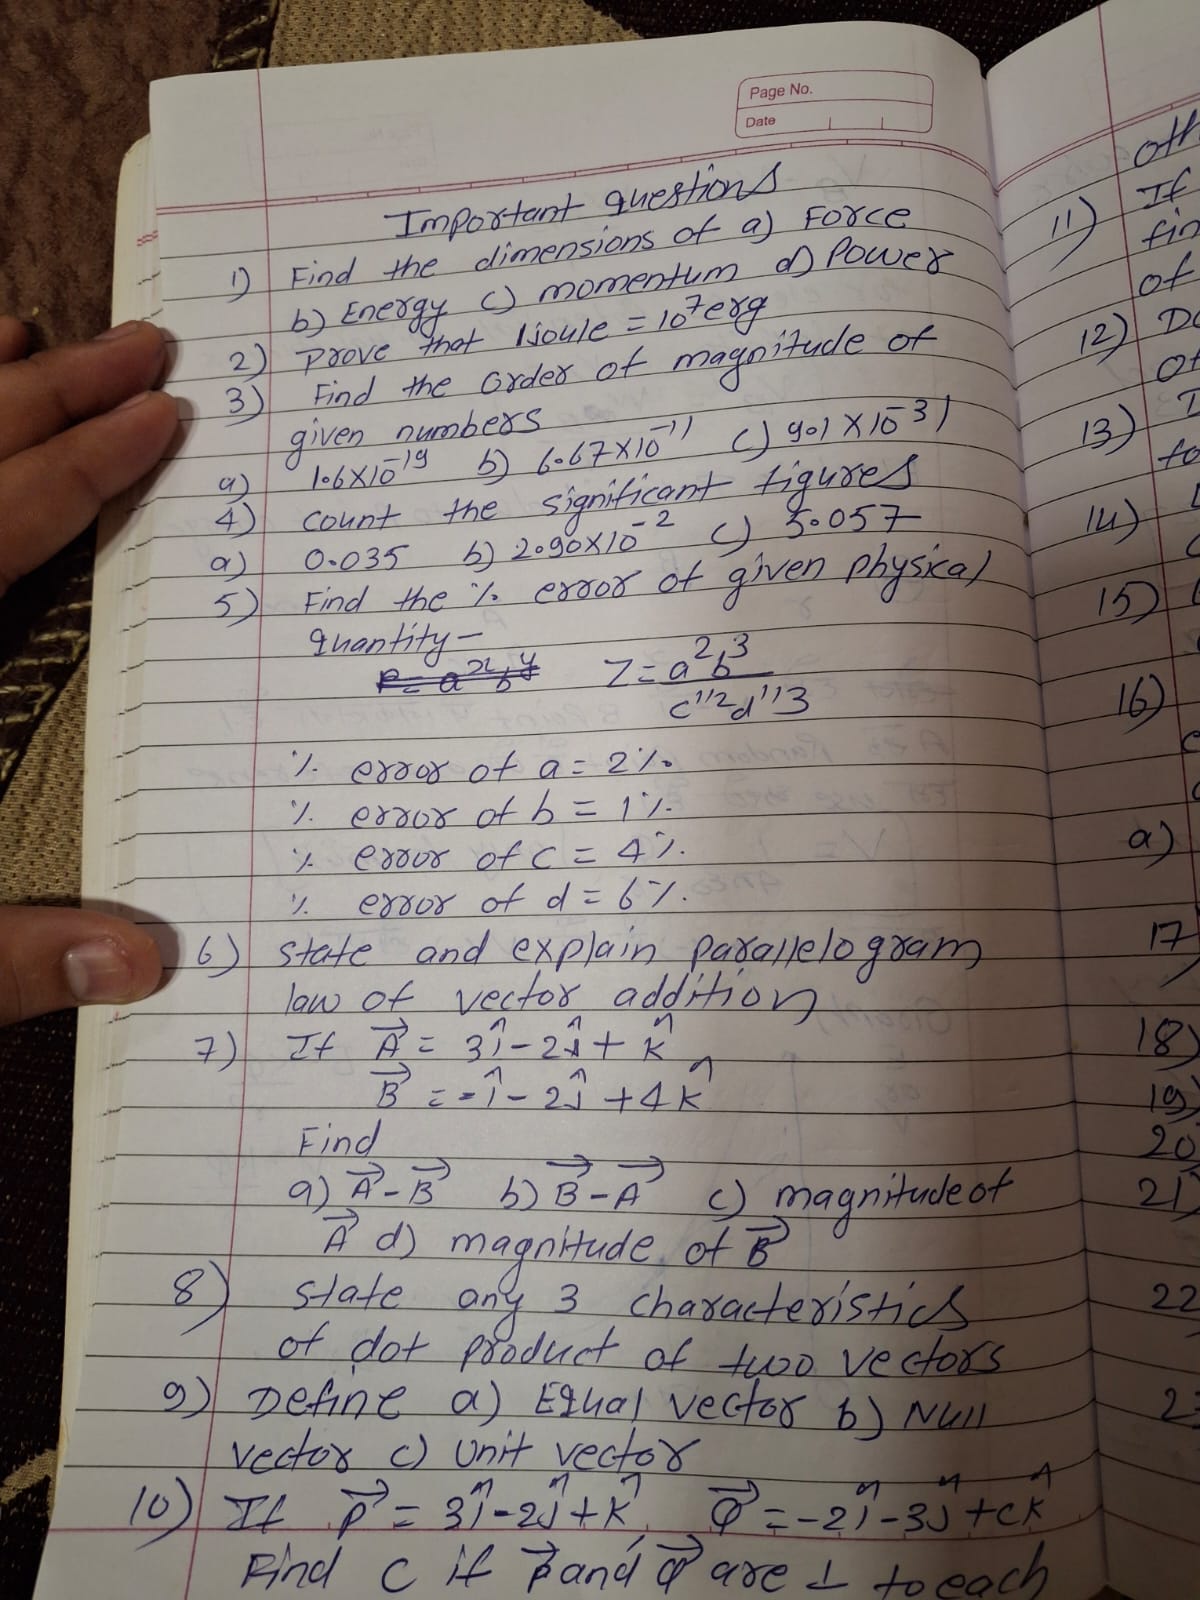 Page No.
Date
Important questions
1) Find the dimensions of a) Force
b) Energy c) momentum d) Power
2) Prove that 1joule = 10⁷erg
3) Find the order of magnitude of
given numbers
a) 1.6×10⁻¹⁹ b) 6.67×10⁻¹¹ c) 9.1×10⁻³¹
4) count the significant figures
a) 0.035 b) 2.90×10⁻² c) 5.057
5) Find the % error of given physical
quantity-
Z = a²b³
c^1/2 d^1/3
% error of a = 2%.
% error of b = 1%.
% error of c = 4%.
% error of d = 6%.
6) state and explain parallelogram
law of vector addition
7) If A⃗ = 3î - 2ĵ + k̂
B⃗ = -î - 2ĵ + 4k̂
Find
a) A⃗ - B⃗ b) B⃗ - A⃗ c) magnitude of
A⃗ d) magnitude of B⃗
8) state any 3 characteristics
of dot product of two vectors
9) Define a) Equal vector b) Null
vector c) Unit vector
10) If P⃗ = 3î - 2ĵ + k̂ Q⃗ = -2î - 3ĵ + ck̂
Find c if P⃗ and Q⃗ are ⊥ to each
11) If
of
12)
13)
to
14)
15)
16)
a)
17
18)
19)
20
21)
22